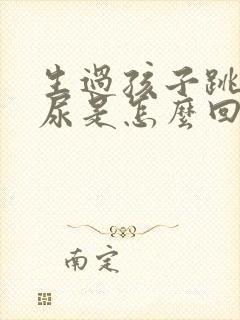 生過孩子跳
尿是怎麼回
南定